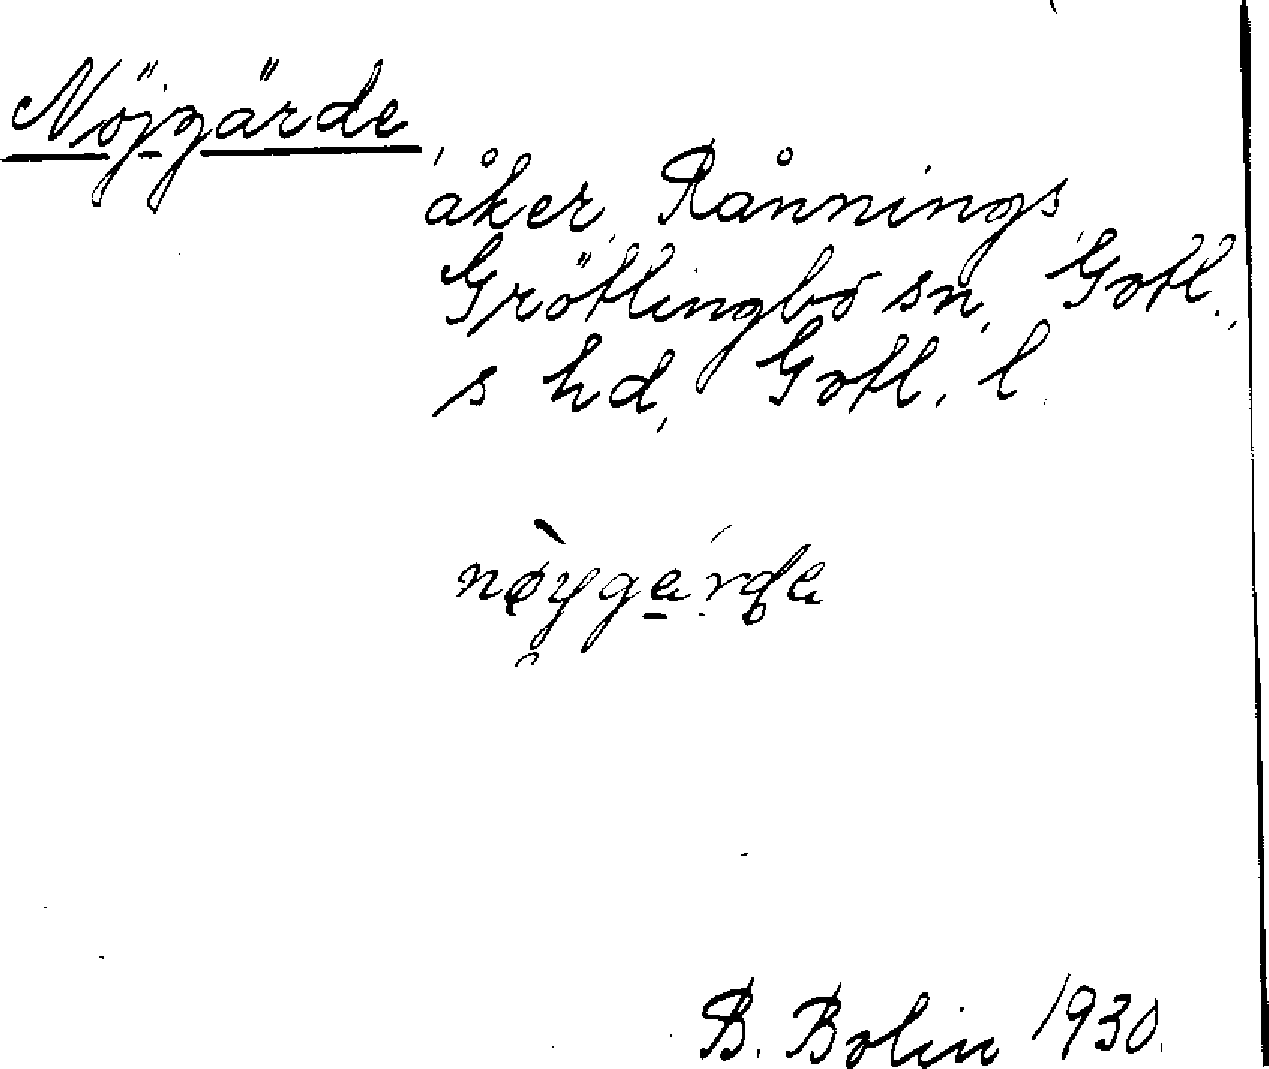 Nöjgärde
åker, Rånnings
Grötlingbo sn, Gotl.,
s hd, Gotl. l.
nøygærde
B. Bolin 1930.